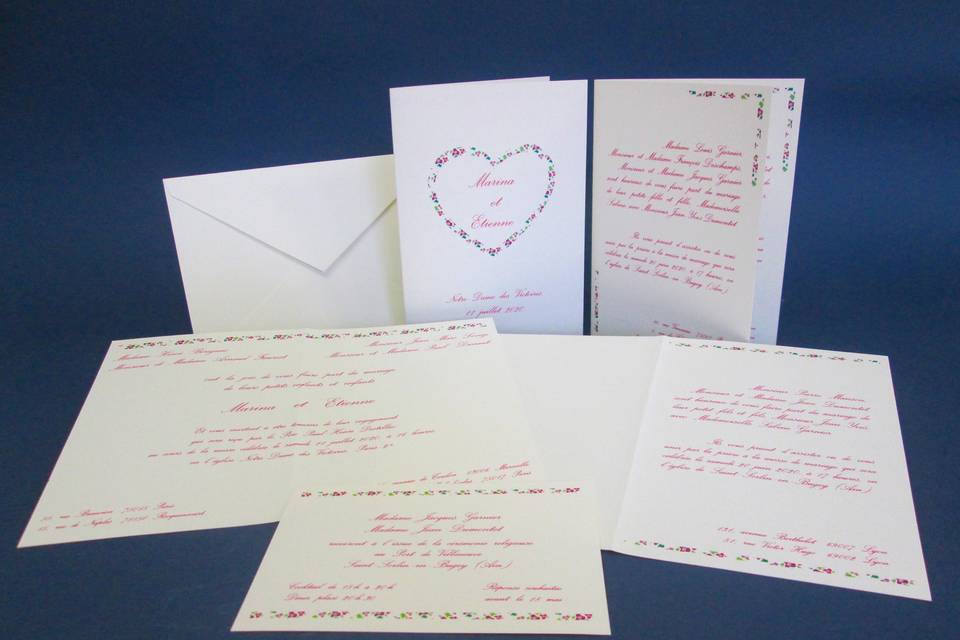 Marina
et
Etienne
Notre Dame des Victoires
11 juillet 2020
Madame Louis Garnier
Monsieur et Madame François Deschamps
Monsieur et Madame Jacques Garnier
sont heureux de vous faire part du mariage
de leurs petite fille et fille, Mademoiselle
Sabine avec Monsieur Jean Yves Dumontet
Ils vous prient d'assister ou de vous
unir par la prière à la messe de mariage qui sera
célébrée le samedi 20 juin 2020, à 17 heures, en
l'église de Saint Sorlin en Bugey (Ain)
Madame Henri
Monsieur et Madame Armand
Monsieur Jean Marc
Monsieur et Madame Paul
ont la joie de vous faire part du mariage
de leurs petits enfants et enfants
Marina et Etienne
Et vous invitent à être témoins de leur engagement
qui sera reçu par le Père Paul Henri
au cours de la messe célébrée le samedi 11 juillet 2020, à 16 heures
en l'église Notre Dame des Victoires, Paris 2e
avenue de Toulon 13006 Marseille
75017 Paris
75015 Paris
rue de Naples 78150 Rocquencourt
Monsieur Pierre
Monsieur et Madame Jean Dumontet
sont heureux de vous faire part du mariage de
leur petit fils et fils, Monsieur Jean Yves
avec Mademoiselle Sabine Garnier
Ils vous prient d'assister ou de vous
unir par la prière à la messe de mariage qui sera
célébrée le samedi 20 juin 2020, à 17 heures, en
l'église de Saint Sorlin en Bugey (Ain)
131, avenue Berthelot 69007 Lyon
51, rue Victor Hugo 69002 Lyon
Madame Jacques Garnier
Madame Jean Dumontet
recevront à l'issue de la cérémonie religieuse
au Port de Villeneuve
Saint Sorlin en Bugey (Ain)
Cocktail de 18 h à 20 h
Dîner placé 20 h 30
Réponse souhaitée
avant le 15 mai